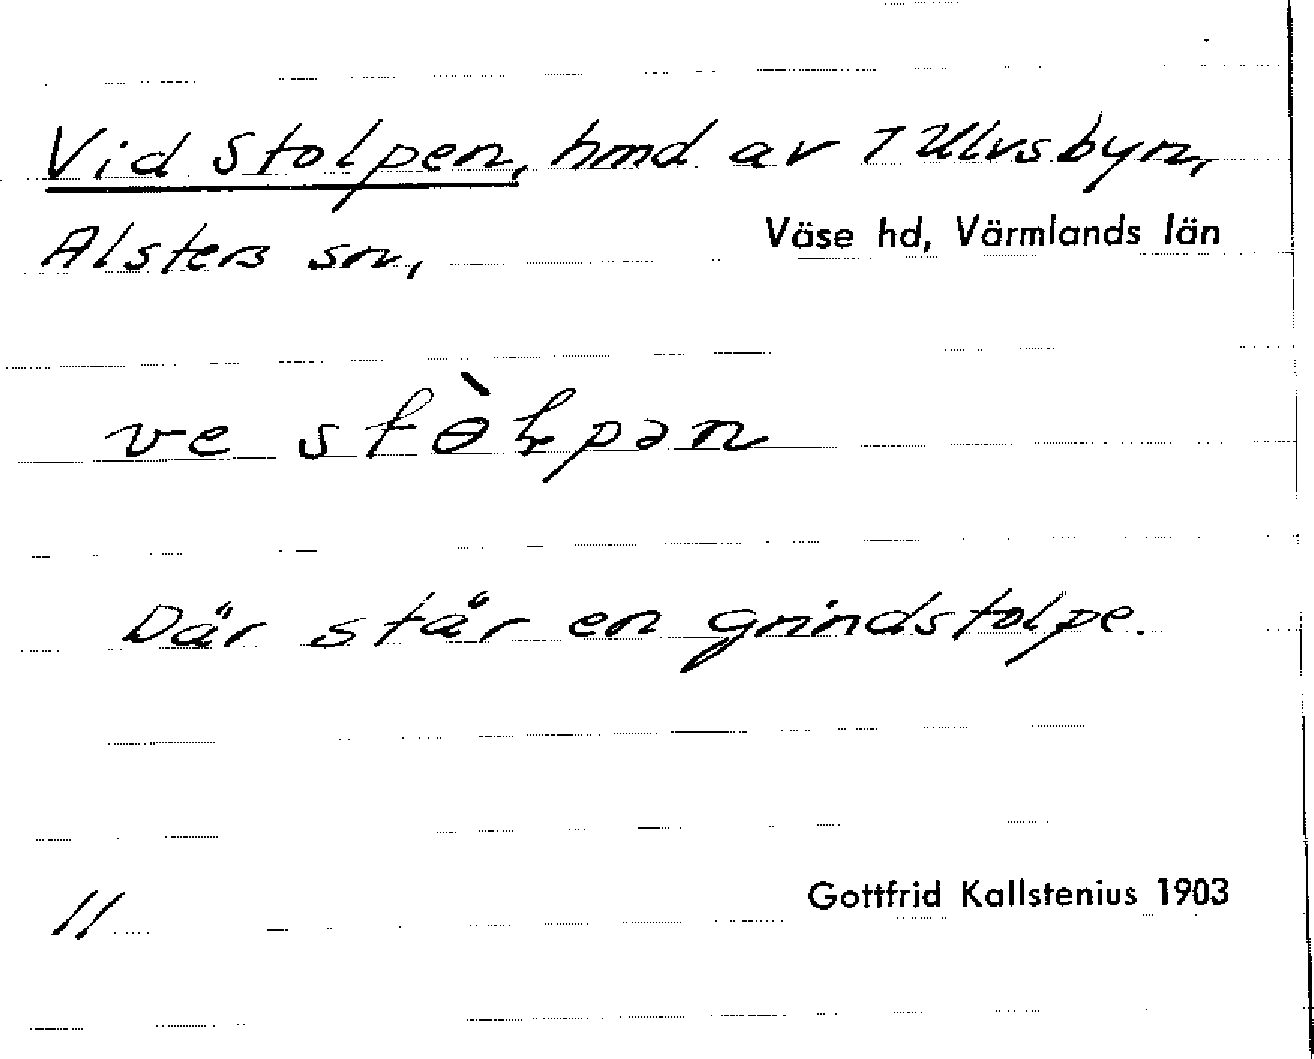 Vid Stolpen, hmd. av 7 Ulvsbyn,
Alsters sn,
Väse hd, Värmlands län
ve
Där står en grindstolpe.
Gottfrid Kallstenius 1903
11